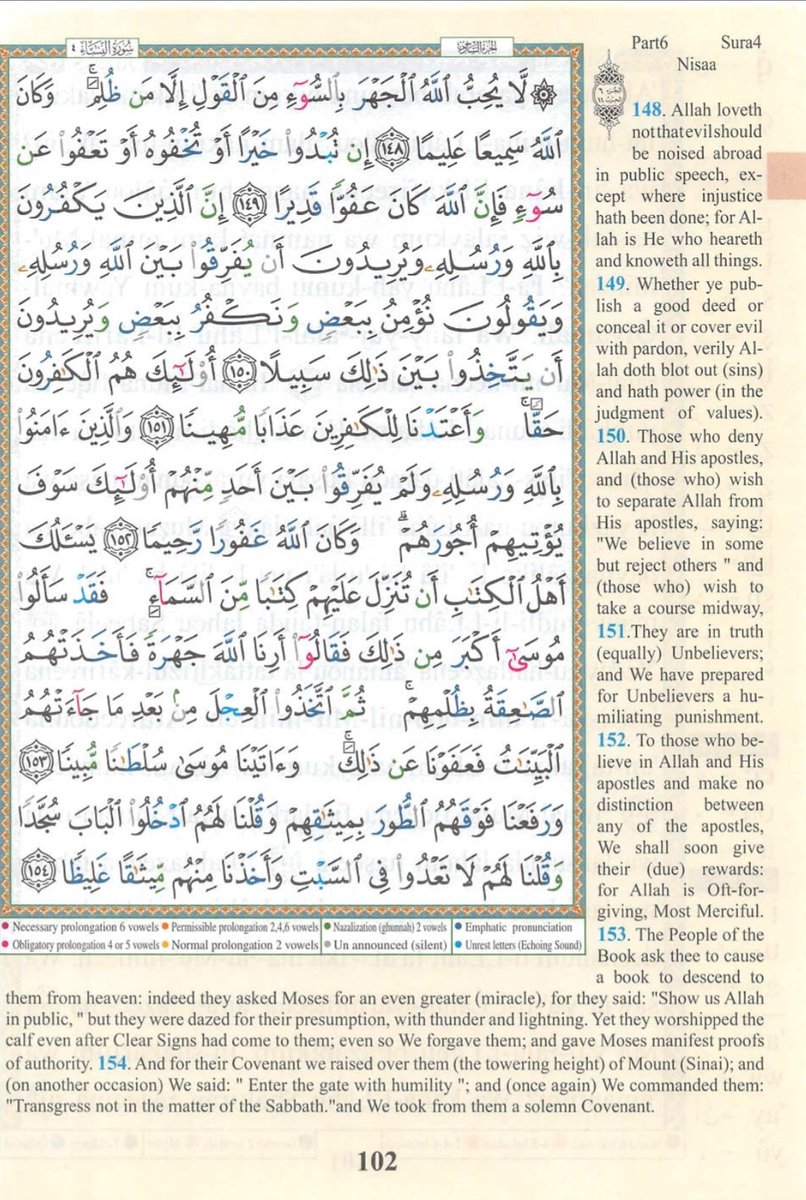 سُورَةُ النِّسَاءِ ٤
الجُزءُ السَّادِسُ
Part6 Sura4
Nisaa
۞ لَّا يُحِبُّ ٱللَّهُ ٱلْجَهْرَ بِٱلسُّوٓءِ مِنَ ٱلْقَوْلِ إِلَّا مَن ظُلِمَ ۚ وَكَانَ
ٱللَّهُ سَمِيعًا عَلِيمًا ١٤٨ إِن تُبْدُوا۟ خَيْرًا أَوْ تُخْفُوهُ أَوْ تَعْفُوا۟ عَن
سُوٓءٍ فَإِنَّ ٱللَّهَ كَانَ عَفُوًّا قَدِيرًا ١٤٩ إِنَّ ٱلَّذِينَ يَكْفُرُونَ
بِٱللَّهِ وَرُسُلِهِۦ وَيُرِيدُونَ أَن يُفَرِّقُوا۟ بَيْنَ ٱللَّهِ وَرُسُلِهِۦ
وَيَقُولُونَ نُؤْمِنُ بِبَعْضٍ وَنَكْفُرُ بِبَعْضٍ وَيُرِيدُونَ
أَن يَتَّخِذُوا۟ بَيْنَ ذَٰلِكَ سَبِيلًا ١٥٠ أُو۟لَـٰٓئِكَ هُمُ ٱلْكَـٰفِرُونَ
حَقًّا ۚ وَأَعْتَدْنَا لِلْكَـٰفِرِينَ عَذَابًا مُّهِينًا ١٥١ وَٱلَّذِينَ ءَامَنُوا۟
بِٱللَّهِ وَرُسُلِهِۦ وَلَمْ يُفَرِّقُوا۟ بَيْنَ أَحَدٍ مِّنْهُمْ أُو۟لَـٰٓئِكَ سَوْفَ
يُؤْتِيهِمْ أُجُورَهُمْ ۗ وَكَانَ ٱللَّهُ غَفُورًا رَّحِيمًا ١٥٢ يَسْـَٔلُكَ
أَهْلُ ٱلْكِتَـٰبِ أَن تُنَزِّلَ عَلَيْهِمْ كِتَـٰبًا مِّنَ ٱلسَّمَآءِ ۚ فَقَدْ سَأَلُوا۟
مُوسَىٰٓ أَكْبَرَ مِن ذَٰلِكَ فَقَالُوٓا۟ أَرِنَا ٱللَّهَ جَهْرَةً فَأَخَذَتْهُمُ
ٱلصَّـٰعِقَةُ بِظُلْمِهِمْ ۚ ثُمَّ ٱتَّخَذُوا۟ ٱلْعِجْلَ مِنۢ بَعْدِ مَا جَآءَتْهُمُ
ٱلْبَيِّنَـٰتُ فَعَفَوْنَا عَن ذَٰلِكَ ۚ وَءَاتَيْنَا مُوسَىٰ سُلْطَـٰنًا مُّبِينًا ١٥٣
وَرَفَعْنَا فَوْقَهُمُ ٱلطُّورَ بِمِيثَـٰقِهِمْ وَقُلْنَا لَهُمُ ٱدْخُلُوا۟ ٱلْبَابَ سُجَّدًا
وَقُلْنَا لَهُمْ لَا تَعْدُوا۟ فِى ٱلسَّبْتِ وَأَخَذْنَا مِنْهُم مِّيثَـٰقًا غَلِيظًا ١٥٤
Necessary prolongation 6 vowels Permissible prolongation 2,4,6 vowels Nazalization (ghunnah) 2 vowels Emphatic pronunciation
Obligatory prolongation 4 or 5 vowels Normal prolongation 2 vowels Un announced (silent) Unrest letters (Echoing Sound)
148. Allah loveth
not that evil should
be noised abroad
in public speech, ex-
cept where injustice
hath been done; for Al-
lah is He who heareth
and knoweth all things.
149. Whether ye pub-
lish a good deed or
conceal it or cover evil
with pardon, verily Al-
lah doth blot out (sins)
and hath power (in the
judgment of values).
150. Those who deny
Allah and His apostles,
and (those who) wish
to separate Allah from
His apostles, saying:
"We believe in some
but reject others " and
(those who) wish to
take a course midway,
151.They are in truth
(equally) Unbelievers;
and We have prepared
for Unbelievers a hu-
miliating punishment.
152. To those who be-
lieve in Allah and His
apostles and make no
distinction between
any of the apostles,
We shall soon give
their (due) rewards:
for Allah is Oft-for-
giving, Most Merciful.
153. The People of the
Book ask thee to cause
a book to descend to
them from heaven: indeed they asked Moses for an even greater (miracle), for they said: "Show us Allah
in public, " but they were dazed for their presumption, with thunder and lightning. Yet they worshipped the
calf even after Clear Signs had come to them; even so We forgave them; and gave Moses manifest proofs
of authority. 154. And for their Covenant we raised over them (the towering height) of Mount (Sinai); and
(on another occasion) We said: " Enter the gate with humility "; and (once again) We commanded them:
"Transgress not in the matter of the Sabbath."and We took from them a solemn Covenant.
102